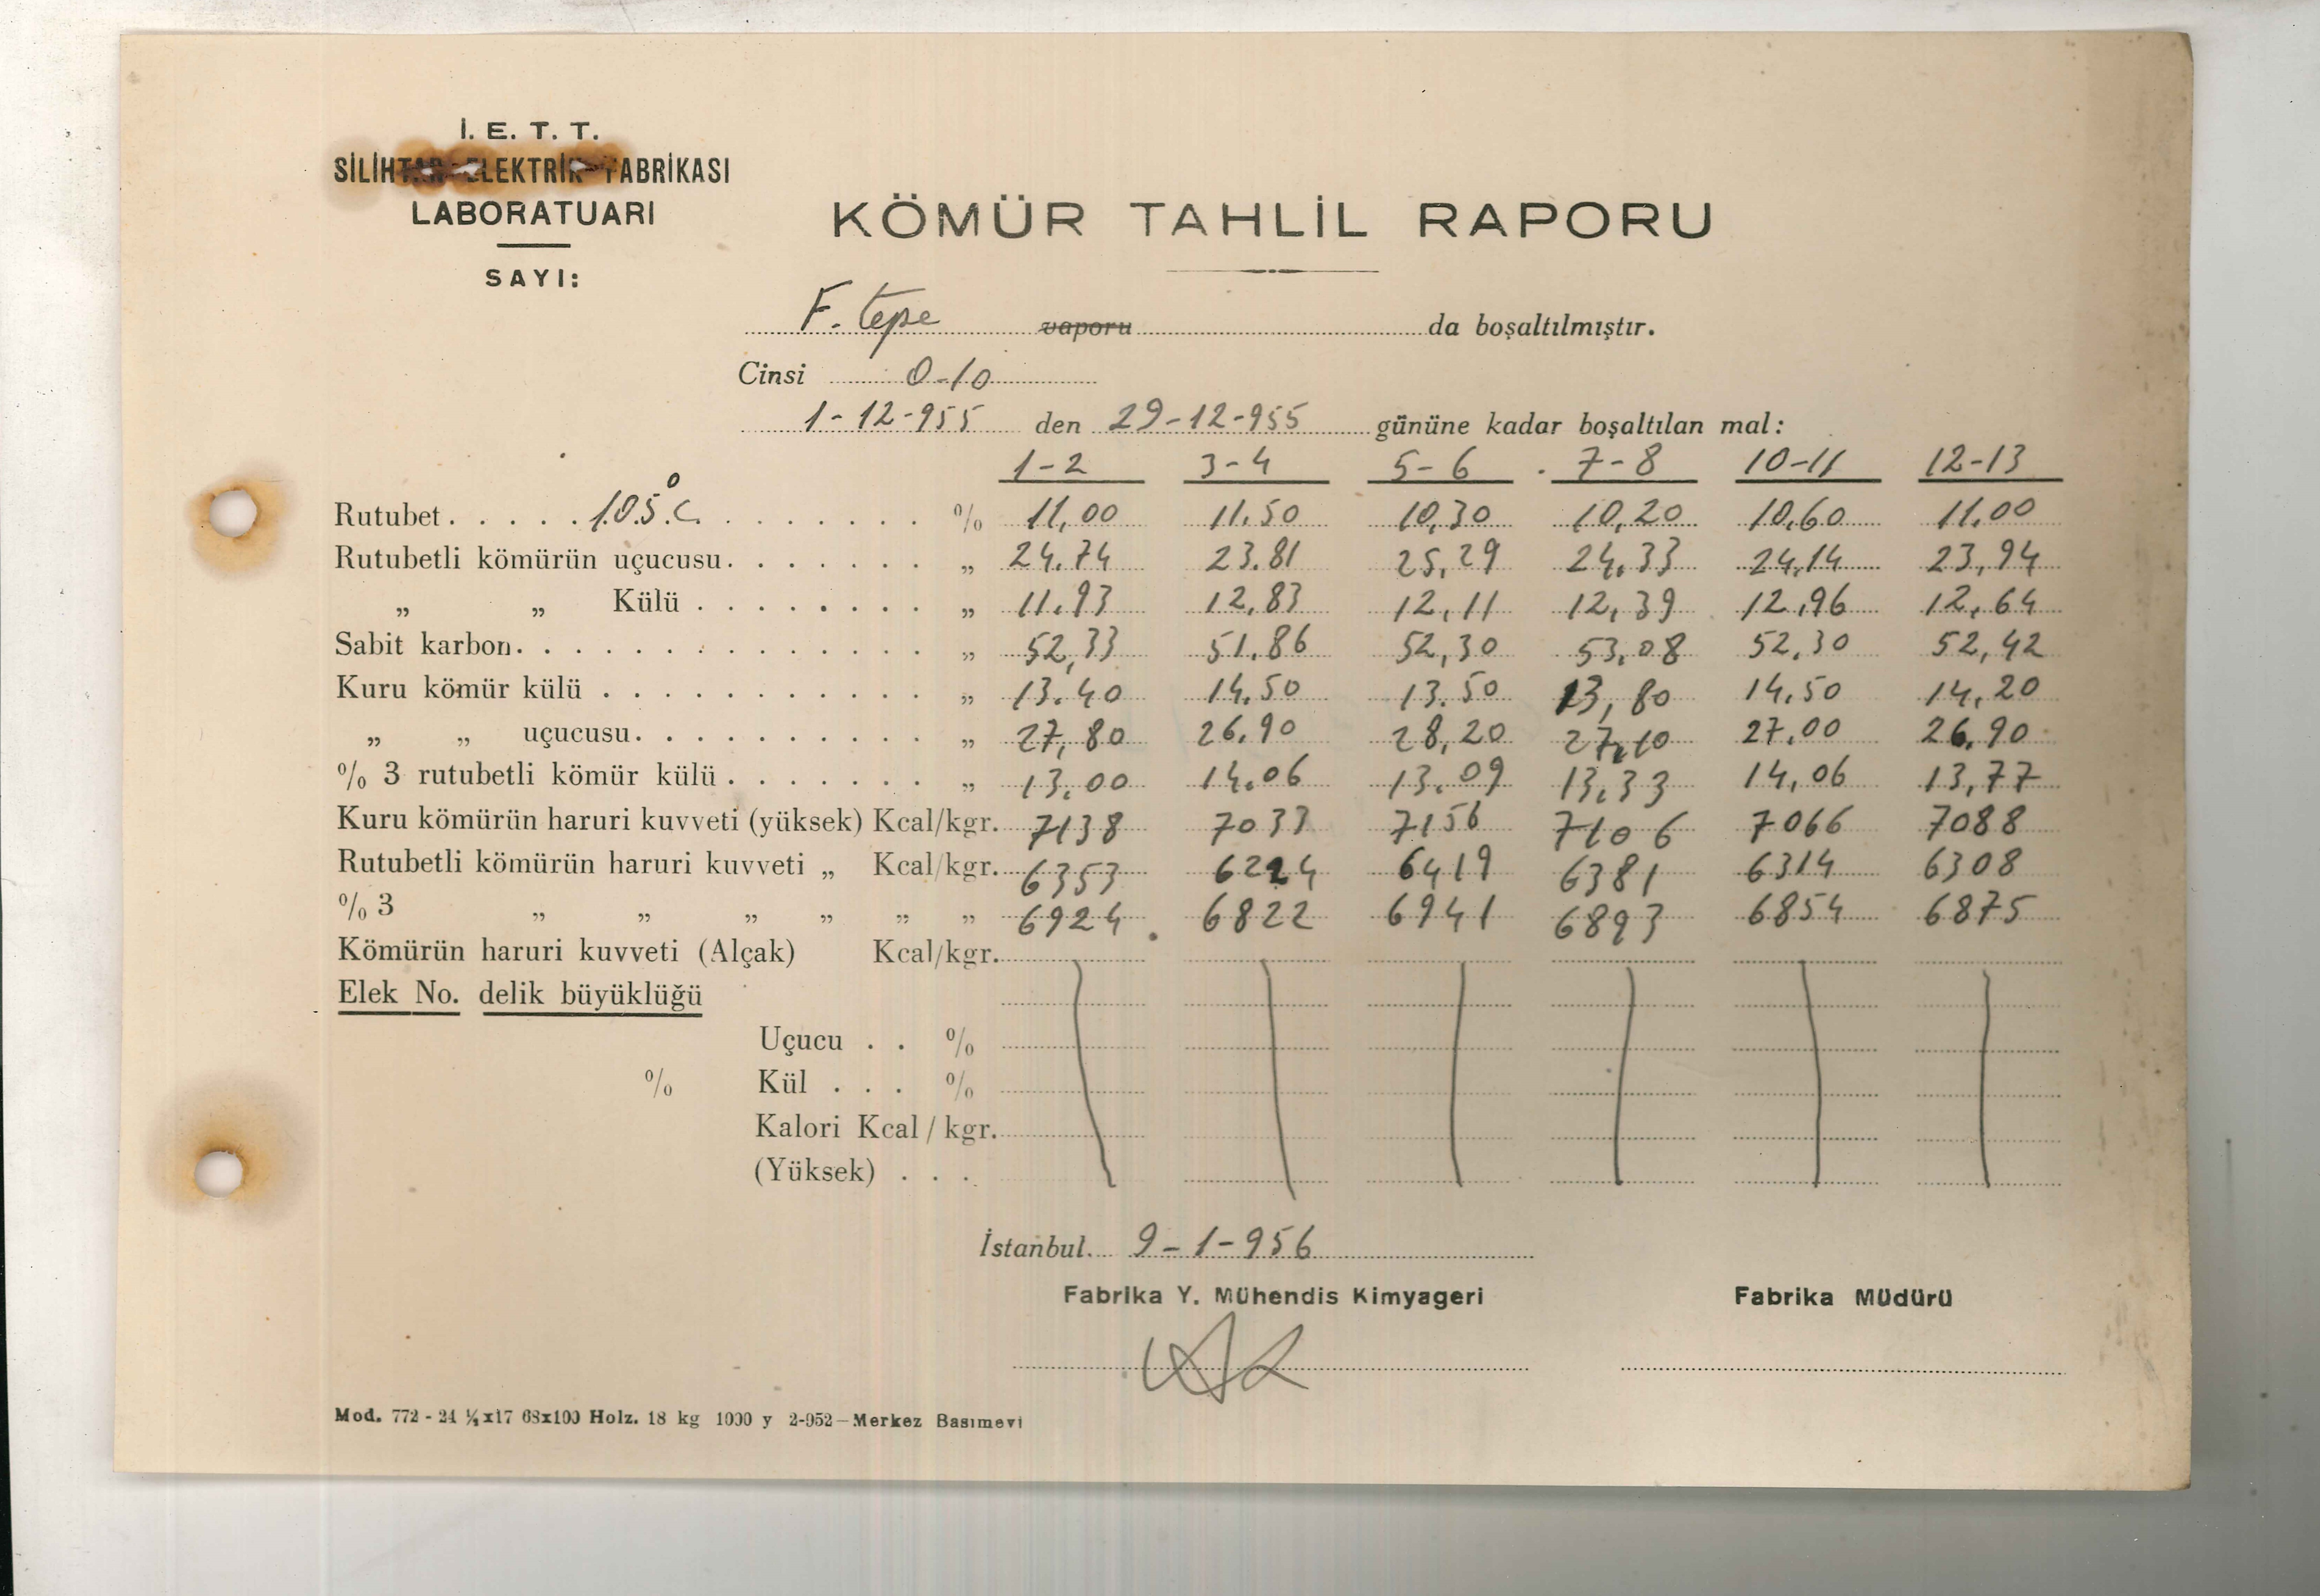 İ. E. T. T.
SİLİHTAR ELEKTRİK FABRİKASI
LABORATUARI
SAYI:
KÖMÜR TAHLİL RAPORU
F. tepe vaporu da boşaltılmıştır.
Cinsi 0-10
1-12-955 den 29-12-955 gününe kadar boşaltılan mal:
1-2 3-4 5-6 7-8 10-11 12-13
Rutubet 105°C. % 11,00 11.50 10,30 10,20 10,60 11.00
Rutubetli kömürün uçucusu „ 24.74 23.81 25,29 24,33 24,14 23,94
„ „ Külü „ 11.93 12,83 12,11 12,39 12,96 12,64
Sabit karbon „ 52,33 51.86 52,30 53,08 52,30 52,42
Kuru kömür külü „ 13.40 14.50 13.50 13,80 14,50 14,20
„ „ uçucusu „ 27,80 26.90 28,20 27,10 27.00 26,90
% 3 rutubetli kömür külü „ 13,00 14.06 13.09 13,33 14,06 13,77
Kuru kömürün haruri kuvveti (yüksek) Kcal/kgr. 7138 7033 7156 7106 7066 7088
Rutubetli kömürün haruri kuvveti „ Kcal/kgr. 6353 6224 6419 6381 6314 6308
% 3 „ „ „ „ „ „ 6924 6822 6941 6893 6854 6875
Kömürün haruri kuvveti (Alçak) Kcal/kgr.
Elek No. delik büyüklüğü
Uçucu . . %
% Kül . . . %
Kalori Kcal / kgr.
(Yüksek) . . .
İstanbul. 9-1-956
Fabrika Y. Mühendis Kimyageri Fabrika Müdürü
Mod. 772 - 24 ¼x17 68x100 Holz. 18 kg 1000 y 2-952—Merkez Basımevi